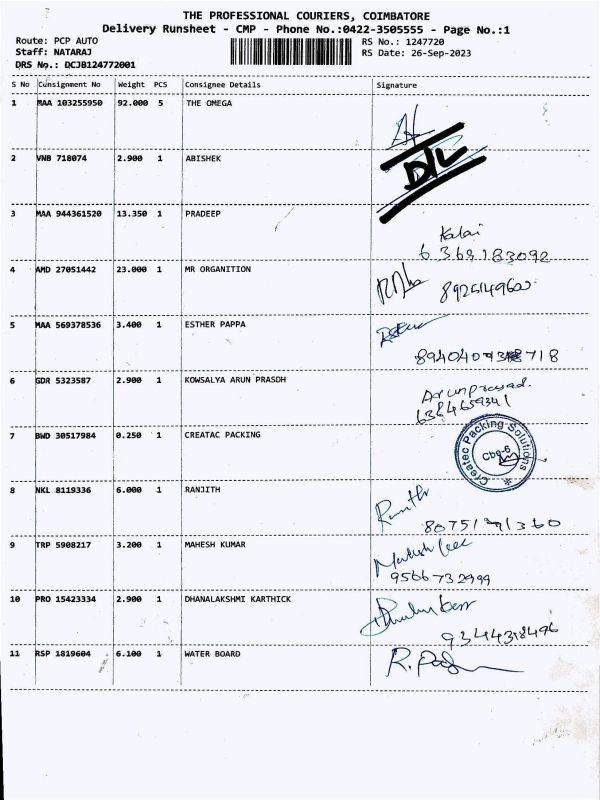 THE PROFESSIONAL COURIERS, COIMBATORE
Delivery Runsheet - CMP - Phone No.:0422-3505555 - Page No.:1
Route: PCP AUTO
Staff: NATARAJ
DRS No.: DCJB124772001
RS No.: 1247720
RS Date: 26-Sep-2023
S No Consignment No Weight PCS Consignee Details Signature
1 MAA 103255950 92.000 5 THE OMEGA
2 VNB 718074 2.900 1 ABISHEK D/L
3 MAA 944361520 13.350 1 PRADEEP
Kalai
6369183092
4 AMD 27051442 23.000 1 MR ORGANITION
5 MAA 569378536 3.400 1 ESTHER PAPPA
6 GDR 5323587 2.900 1 KOWSALYA ARUN PRASDH
Arunprasad.
6384659341
7 BWD 30517984 0.250 1 CREATAC PACKING
Createc Packing Solutions
Cbe-6
8 NKL 8119336 6.000 1 RANJITH
9 TRP 5908217 3.200 1 MAHESH KUMAR
9566732999
10 PRO 15423334 2.900 1 DHANALAKSHMI KARTHICK
9344318496
11 RSP 1819604 6.100 1 WATER BOARD